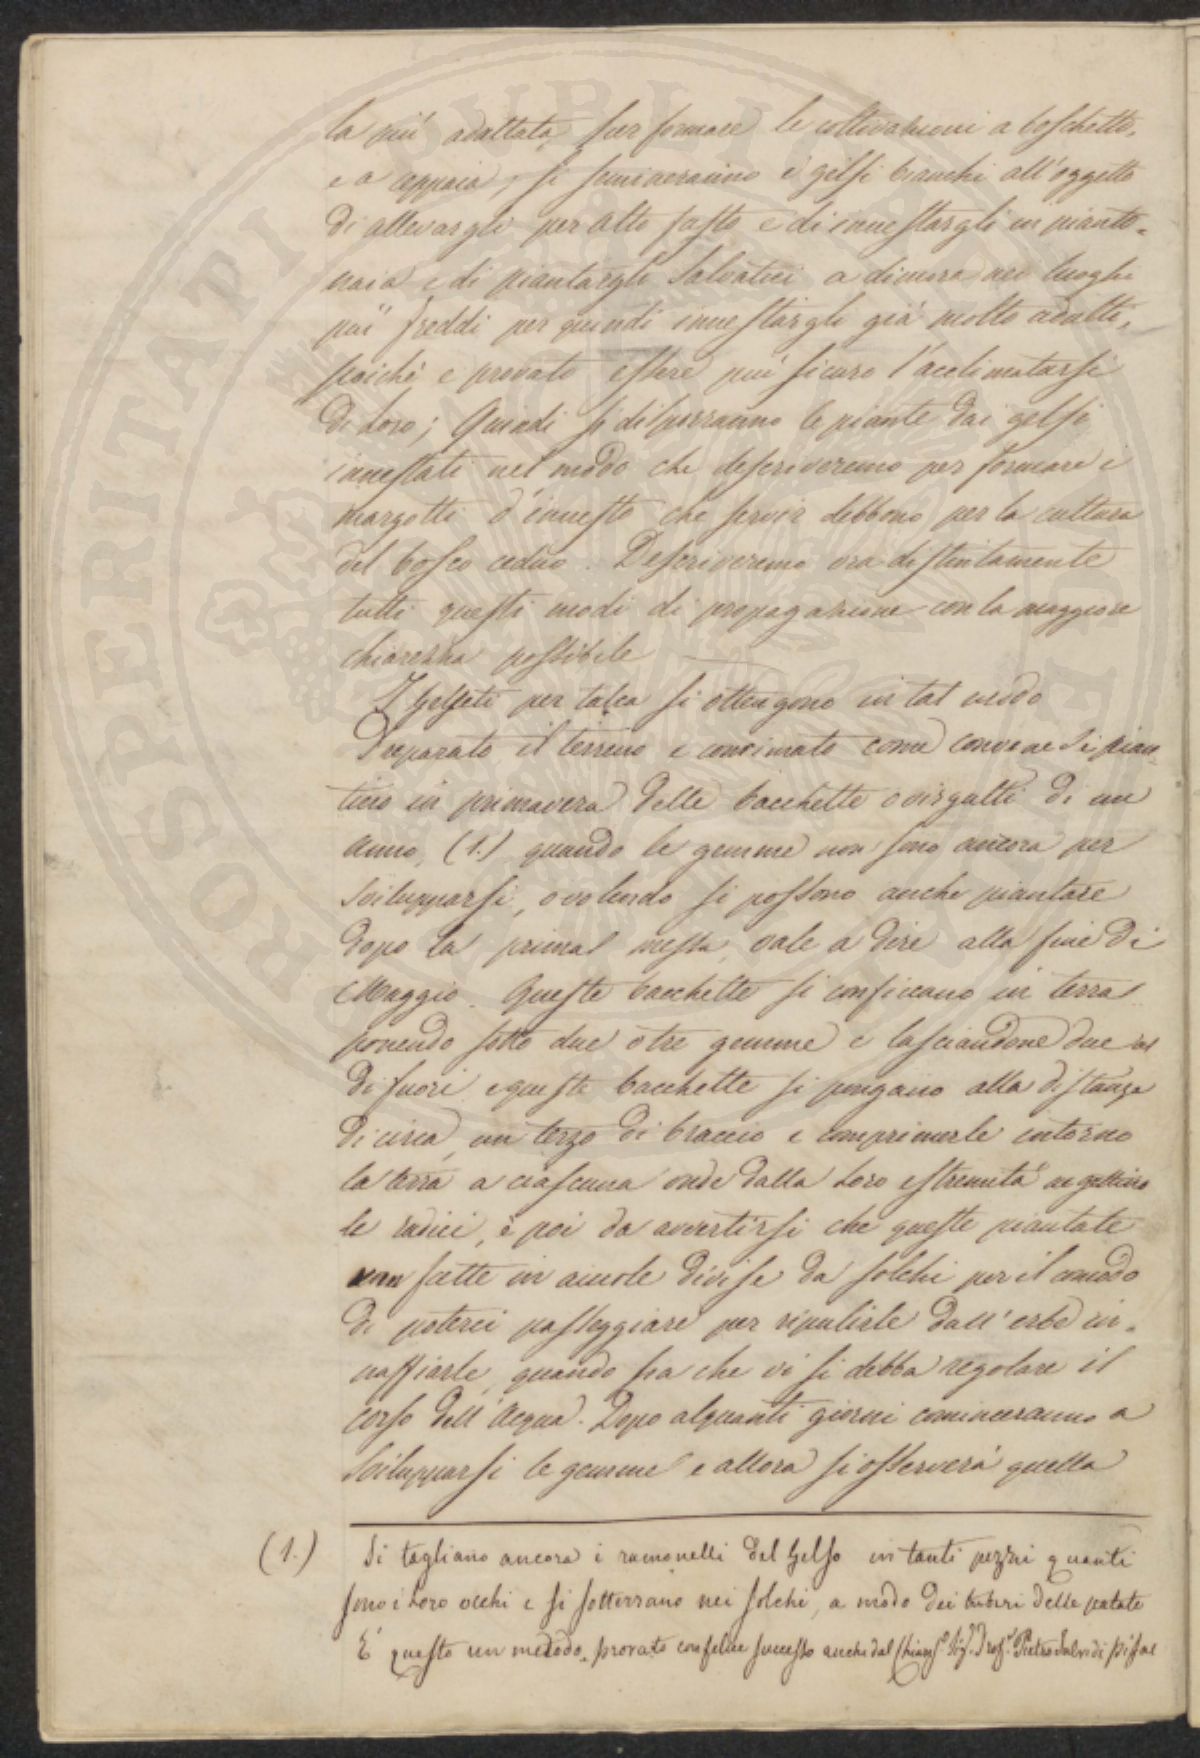 la più adattata, per formare le coltivazioni a boschetto,
e a ceppaia, si semineranno i gelsi bianchi all'oggetto
di allevargli per alto fusto e di innestargli in pianto-
naia e di piantargli salvatici a dimora nei luoghi
più freddi per quindi innestargli già molto adulti,
poiché è provato essere più sicuro l'acclimatarsi
di Loro; Quindi si disporranno le piante dai gelsi
innestati nel modo che descriveremo per formare i
margotti d'innesto che servir debbono per la cultura
del bosco ceduo. Descriveremo ora distintamente
tutti questi modi di propagazione con la maggiore
chiarezza possibile
I Gelseti per talea si ottengono in tal modo
Preparato il terreno e concimato come conviene si pian-
tino in primavera delle bacchette o virgulti di un
anno, (1.) quando le gemme non sono ancora per
svilupparsi, o volendo si possono anche piantare
dopo la prima messa, vale a dire alla fine di
Maggio. Queste bacchette si conficcano in terra
ponendo sotto due o tre gemme e lasciandone due al
di fuori e queste bacchette si pongano alla distanza
di circa un terzo di braccio e comprimerle intorno
la terra a ciascuna onde dalla Loro estremità ne gettino
le radici, è poi da avvertirsi che queste piantate
van fatte in aiuole divise da solchi per il comodo
di poterci passeggiare per ripulirle dall'erbe in-
naffiarle, quando sia che vi si debba regolare il
corso dell'Acqua. Dopo alquanti giorni cominceranno a
svilupparsi le gemme e allora si osserverà quella
(1.) Si tagliano ancora i ramonelli del Gelso in tanti pezzi quanti
sono i Loro occhi e si sotterrano nei solchi, a modo dei tuberi delle patate
E' questo un metodo, provato con felice successo anche dal Chiariss.º Sig.r Prof.r Pietro Salvi di Pisa
PROSPERITATI PUBLICAE